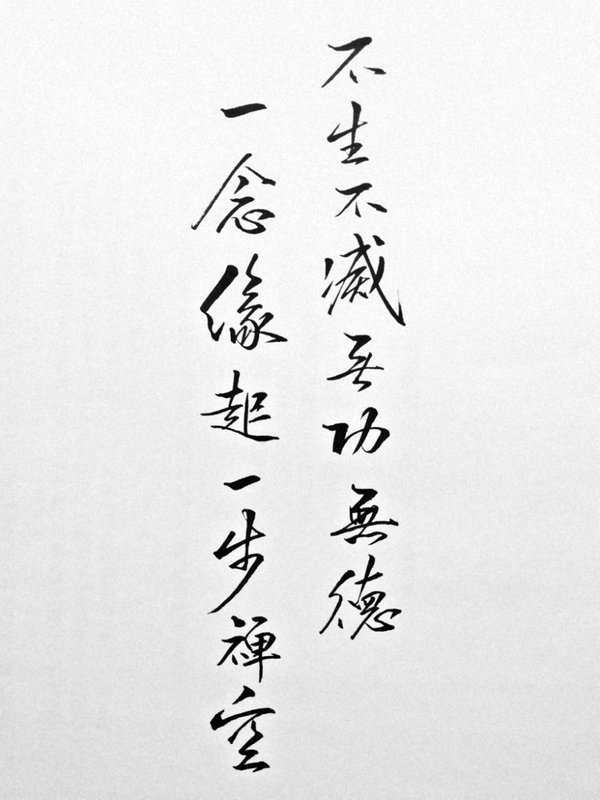 不生不滅無功無德
一念緣起一步禪空